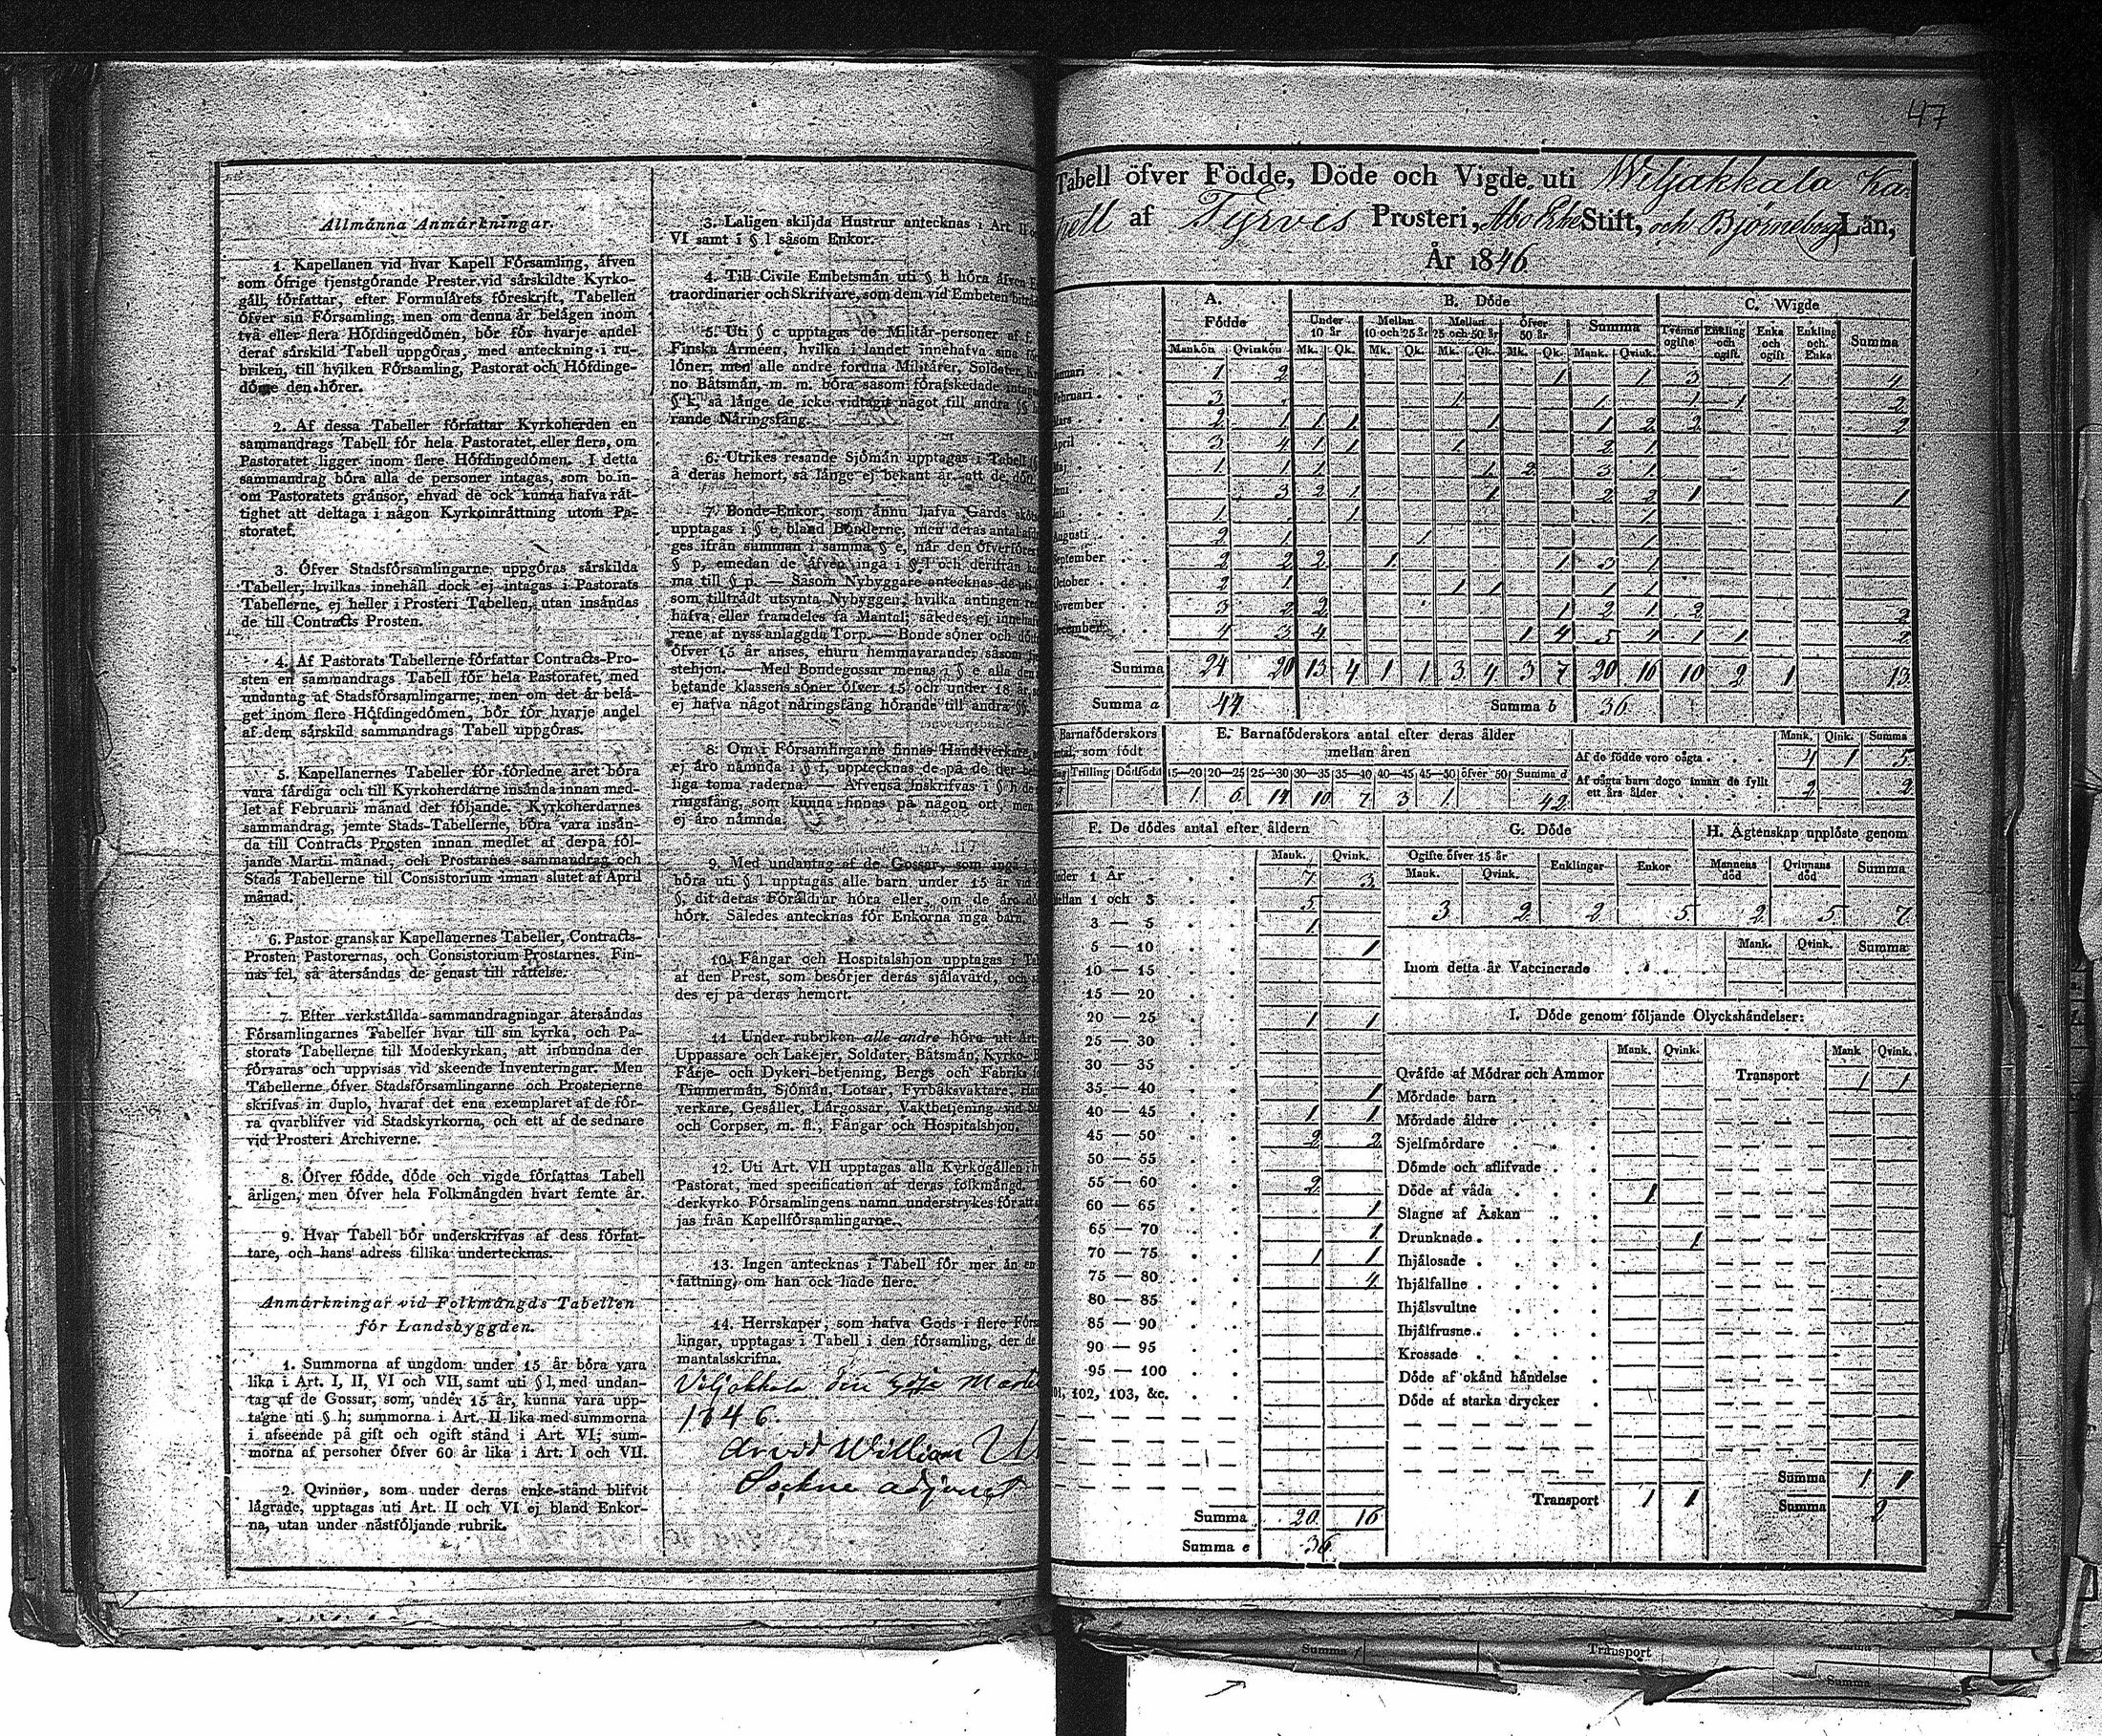 Allmänna Anmärkningar.
1. Kapellanen vid hvar Kapell Församling, äfven
som öfrige tjenstgörande Prester vid särskildte Kyrko-
gäll, författar, efter Formulärets föreskrift, Tabellen
öfver sin Församling; men om denna är belägen inom
två eller flera Höfdingedömen, bör för hvarje andel
deraf särskild Tabell uppgöras, med anteckning i ru-
briken, till hvilken Församling, Pastorat och Höfdinge-
döme den hörer.
2. Af dessa Tabeller författar Kyrkoherden en
sammandrags Tabell för hela Pastoratet, eller flera, om
Pastoratet ligger inom flere Höfdingedömen. I detta
sammandrag böra alla de personer intagas, som bo in-
om Pastoratets gränsor, ehvad de ock kunna hafva rät-
tighet att deltaga i någon Kyrkoinrättning utom Pa-
storatet.
3. Öfver Stadsförsamlingarne uppgöras särskilda
Tabeller, hvilkas innehåll dock ej intagas i Pastorats
Tabellerne, ej heller i Prosteri Tabellen, utan insändas
de till Contracts Prosten.
4. Af Pastorats Tabellerne författar Contracts-Pro-
sten en sammandrags Tabell för hela Pastoratet, med
undantag af Stadsförsamlingarne; men om det är belä-
get inom flere Höfdingedömen, bör för hvarje andel
af dem särskild sammandrags Tabell uppgöras.
5. Kapellanernes Tabeller för förledne året böra
vara färdiga och till Kyrkoherdarne insända innan med-
let af Februarii månad det följande. Kyrkoherdarnes
sammandrag, jemte Stads-Tabellerne, böra vara insän-
da till Contracts Prosten innan medlet af derpå föl-
jande Martii månad, och Prostarnes sammandrag och
Stads Tabellerne till Consistorium innan slutet af April
månad.
6. Pastor granskar Kapellanernes Tabeller, Contracts-
Prosten Pastorernas, och Consistorium Prostarnes. Fin-
nas fel, så återsändas de genast till rättelse.
7. Efter verkställda sammandragningar återsändas
Församlingarnes Tabeller hvar till sin kyrka, och Pa-
storats Tabellerne till Moderkyrkan, att inbundna der
förvaras och uppvisas vid skeende Inventeringar. Men
Tabellerne öfver Stadsförsamlingarne och Prosterierne
skrifvas in duplo, hvaraf det ena exemplaret af de för-
ra qvarblifver vid Stadskyrkorna, och ett af de sednare
vid Prosteri Archiverne.
8. Öfver födde, döde och vigde författas Tabell
årligen, men öfver hela Folkmängden hvart femte år.
9. Hvar Tabell bör underskrifvas af dess förfat-
tare, och hans adress tillika undertecknas.
Anmärkningar vid Folkmängds Tabellen
för Landsbyggden.
1. Summorna af ungdom under 15 år böra vara
lika i Art. I, II, VI och VII, samt uti § l, med undan-
tag af de Gossar, som, under 15 år, kunna vara upp-
tagne uti § h; summorna i Art. II lika med summorna
i afseende på gift och ogift stånd i Art. VI; sum-
morna af personer öfver 60 år lika i Art. I och VII.
2. Qvinnor, som under deras enke-stånd blifvit
lägrade, upptagas uti Art. II och VI ej bland Enkor-
na, utan under nästföljande rubrik.
3. Laligen skiljda Hustrur antecknas i Art. II
VI samt i § l såsom Enkor.
4. Till Civile Embetsmän uti § b höra äfven
traordinarier och Skrifvare, som dem vid Embeten
5. Uti § c upptagas de Militär-personer af f.
Finska Armeen, hvilka i landet innehafva sina
löner; men alle andre fordna Militärer, Soldater,
no Båtsmän, m. m. böra såsom förafskedade
§ k, så länge de icke vidtagit något till andra §§
rande Näringsfång.
6. Utrikes resande Sjömän upptagas i Tabell
å deras hemort, så länge ej bekant är att de
7. Bonde-Enkor, som ännu hafva Gårds
upptagas i § e bland Bönderne, men deras antal
ges ifrån summan i samma § e, när den öfverföres
§ p, emedan de äfven ingå i § l och derifrån
ma till § p. — Såsom Nybyggare antecknas de
som tillträdt utsynta Nybyggen, hvilka antingen
hafva eller framdeles få Mantal; således ej
rene af nyss anlaggda Torp. — Bonde söner och
öfver 15 år anses, ehuru hemmavarande, såsom
stehjon. — Med Bondegossar menas i § e alla
betande klassens söner öfver 15 och under 18 år,
ej hafva något näringsfång hörande till andra §§.
8. Om i Församlingarne finnas Handtverkare,
ej äro nämnda i § f, upptecknas de på de der
liga toma raderna. — Äfvenså inskrifvas i § h de
ringsfång, som kunna finnas på någon ort, men
ej äro nämnda.
9. Med undantag af de Gossar, som ingå i
böra uti § l upptagas alle barn under 15 år vid
§, dit deras Föräldrar höra eller, om de äro
hört. Således antecknas för Enkorna inga barn.
10. Fångar och Hospitalshjon upptagas i
af den Prest, som besörjer deras själavård, och
des ej på deras hemort.
11. Under rubriken alle andre höra uti Art.
Uppassare och Lakejer, Soldater, Båtsmän, Kyrko-
Färje- och Dykeri-betjening, Bergs och Fabriks
Timmermän, Sjömän, Lotsar, Fyrbåksvaktare,
verkare, Gesäller, Lärgossar, Vaktbetjening vid
och Corpser, m. fl., Fångar och Hospitalshjon.
12. Uti Art. VII upptagas alla Kyrkogällen i
Pastorat, med specification af deras folkmängd.
derkyrko Församlingens namn understrykes för att
jas från Kapellförsamlingarne.
13. Ingen antecknas i Tabell för mer än en
fattning, om han ock hade flere.
14. Herrskaper, som hafva Gods i flere
lingar, upptagas i Tabell i den församling, der de
mantalsskrifna.
Viljakkala den
1846.
Arvid William
Sockne adjunct
47
Tabell öfver Födde, Döde och Vigde uti Wiljakkala Ka-
pell af Tyrvis Prosteri, Åbo Erke Stift, och Björneborgs Län,
År 1846
A. B. Döde C. Wigde
Födde Under 10 år Mellan 10 och 25 år Mellan 25 och 50 år Öfver 50 år Summa Tvenne ogifte Enkling och ogift. Enka och ogift Enkling och Enka Summa
Mankön Qvinkön Mk. Qk. Mk. Qk. Mk. Qk. Mk. Qk. Mank. Qvink.
Januari 1 2 1 1 3 1 4
Februari 3 1 1 1 1 2
Mars 2 1 1 1 1 1 2 2 2
April 3 4 1 1 1 2 1
Maj 1 1 1 1 2 3 1
Juni 3 2 1 1 2 2 1 1
Juli 1 1 1
Augusti 2 1 1 1
September 2 2 2 1 1 3 1
October 2 1 1 1 1 1
November 3 2 2 1 2 1 2 2
December 4 3 4 1 4 5 4 1 1 2
Summa 24 20 13 4 1 1 3 4 3 7 20 16 10 2 1 13
Summa a 44 Summa b 36
Barnaföderskors
antal, som födt
Trilling Dödfödt
E. Barnaföderskors antal efter deras ålder
mellan åren
15—20 20—25 25—30 30—35 35—40 40—45 45—50 öfver 50 Summa d
1 6 14 10 7 3 1 42
Mank. Qink. Summa
Af de födde voro oägta 4 1 5
Af oägta barn dogo innan de fyllt
ett års ålder 2 2
F. De dödes antal efter åldern
Mank. Qvink.
Under 1 År 7 3
Mellan 1 och 3 5
3 — 5 1
5 — 10 1
10 — 15
15 — 20
20 — 25 1 1
25 — 30
30 — 35
35 — 40 1
40 — 45 1 1
45 — 50 2 2
50 — 55
55 — 60 2
60 — 65 1
65 — 70 1
70 — 75 1 1
75 — 80 4
80 — 85
85 — 90
90 — 95
95 — 100
101, 102, 103, &c.
Summa 20 16
Summa e 36
G. Döde
Ogifte öfver 15 år Enklingar Enkor
Mank. Qvink.
3 2 2 5
H. Ägtenskap upplöste genom
Mannens död Qvinnans död Summa
2 5 7
Mank. Qvink. Summa
Inom detta år Vaccinerade
I. Döde genom följande Olyckshändelser:
Mank. Qvink. Mank. Qvink.
Qväfde af Mödrar och Ammor Transport 1 1
Mördade barn
Mördade äldre
Sjelfmördare
Dömde och aflifvade
Döde af våda 1
Slagne af Åskan
Drunknade 1
Ihjälosade
Ihjälfallne
Ihjälsvultne
Ihjälfrusne
Krossade
Döde af okänd händelse
Döde af starka drycker
Summa 1 1
Transport 1 1
Summa 2
Summa f
Transport
Summa